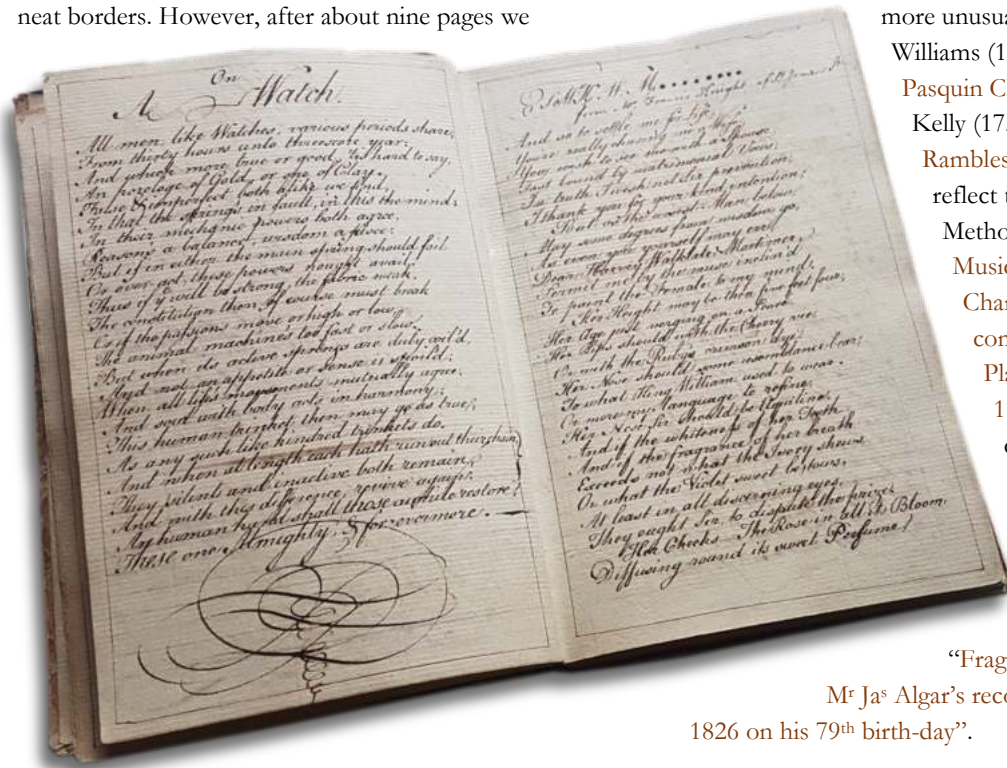 neat borders. However, after about nine pages we
On
A Watch.
All men like Watches, various periods share,
From thirty hours unto threescore year;
And which more true or good, 'tis hard to say,
An horologe of Gold, or one of Clay,
False & imperfect both alike we find,
In that the spring's in fault, in this the mind:
In their mechanic powers both agree,
Reason's a balance, wisdom a fusee:
But if in either the main spring should fail
Or over act, these powers nought avail,
Thus if y will be strong, the fabric weak,
The constitution then of course must break
Or if the passions move or high or low,
The animal machine's too fast or slow,
But when do active springs are duly
And not an appetite or sense is spoild;
When all life's movements mutually agree,
And soul with body acts in harmony;
This human trinket then may go as true,
As any such like kindred trinkets do.
And when at length each hath run out their chain,
They silent and inactive both remain,
And with this difference, revive again:
An human hand shall those awhile restore
These one, Almighty, & for evermore.
from
And so to settle me for Life,
You're really chusing me a Wife;
Your wish to see me with a Spouse
Fast bound by matrimonial Vows;
In truth I wish not Sir prevention;
I thank you for your kind intention;
But as the wisest Man below
May some degrees from wisdom go,
As even you yourself may err,
Dear Harvey Walklate Mortimer,
Permit me by the muse inclin'd
To paint the Female to my mind;
Her Height may be then five feet four,
Her Age just verging on a Score
Her Lips should with the Cherry vie
Or with the Ruby's crimson dye;
Her Nose should some resemblance bear,
To what King William used to wear.
Or more my language to refine,
Her Nose Sir should be Aquiline!
And if the whiteness of her Teeth
And if the fragrance of her breath
Exceeds not what the Ivory shews
Or what the Violet sweet bestows,
At least in all discerning eyes,
They ought Sir, to dispute the prize;
Her Cheeks The Rose in all its Bloom
Diffusing round its sweet Perfume!
more
Williams
Pasquin
Kelly
Rambles
reflect
“
Mʳ Jaˢ Algar’s
1826 on his 79ᵗʰ birth-day”.